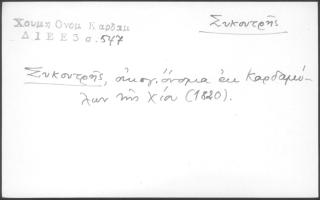 Χουμη Ονομ Καρδαμ
Δ Ι Ε Ε 3 σ. 547
Συκουτρῆς
Συκουτρῆς, οἰκογ. ὄνομα ἐκ Καρδαμύ-
λων τῆς Χίου (1820).